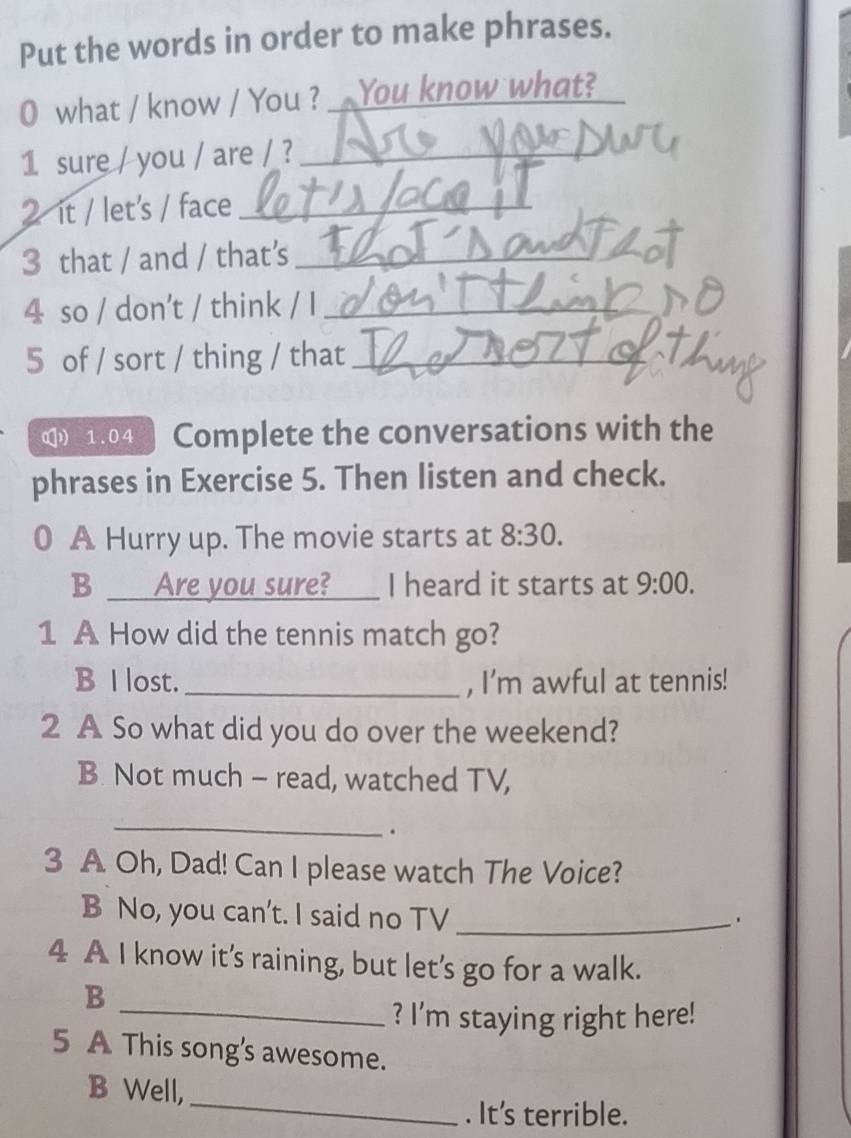 Put the words in order to make phrases.
0 what / know / You ? You know what?
1 sure / you / are / ? Are you sure
2 it / let's / face let's face it
3 that / and / that's that's and that
4 so / don't / think / I don't think so
5 of / sort / thing / that That sort of thing
1.04 Complete the conversations with the
phrases in Exercise 5. Then listen and check.
0 A Hurry up. The movie starts at 8:30.
B Are you sure? I heard it starts at 9:00.
1 A How did the tennis match go?
B I lost. ____________, I'm awful at tennis!
2 A So what did you do over the weekend?
B Not much – read, watched TV,
____________.
3 A Oh, Dad! Can I please watch The Voice?
B No, you can't. I said no TV ____________.
4 A I know it's raining, but let's go for a walk.
B ____________? I'm staying right here!
5 A This song's awesome.
B Well, ____________. It's terrible.